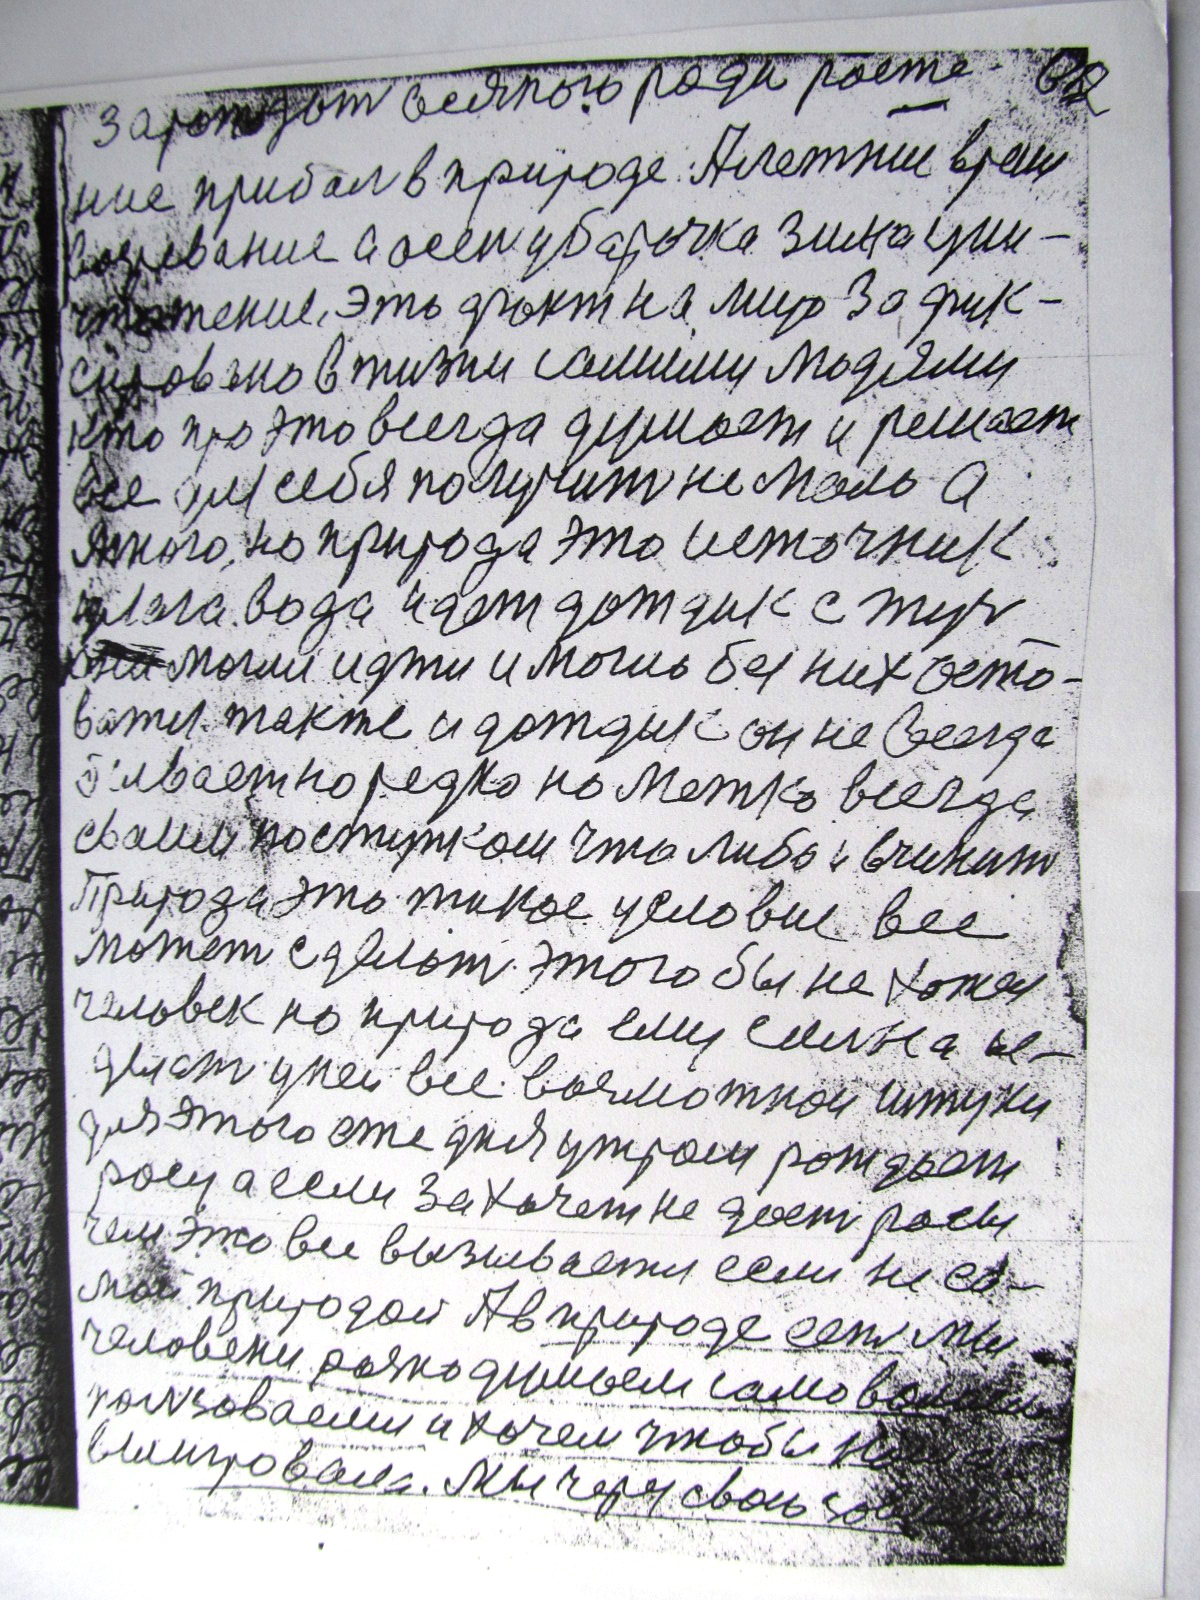 зарождат всякого ради расте- 62
ние прибал в природе. А летнии время
вызревание а осен уборочка зима уни-
чтожение. Это факт на миро зафик-
сировано в жизни самими людями
кто про это всегда думает и решает
все для себя получит не мало а
много, но природа это источник
влага. вода идет дождик с туч
могли идти и могли без них осто-
ватся. также и дождик он не всегда
бывает но редко но метко всегда
своим поступком что либо и вчинит
Природа это такое условие все
может сделат. этого бы не хотел
человек но природа ему силна
делат у ней все возможнои штуки
для этого еже дня утром рождает
росу а если захочет не даст росы
чем это все вызивается если не са-
мой природой А в природе есть мы
человеки разно думаем самоволием
ползоваеми и хочем чтобы
выигровал. Мы через свою